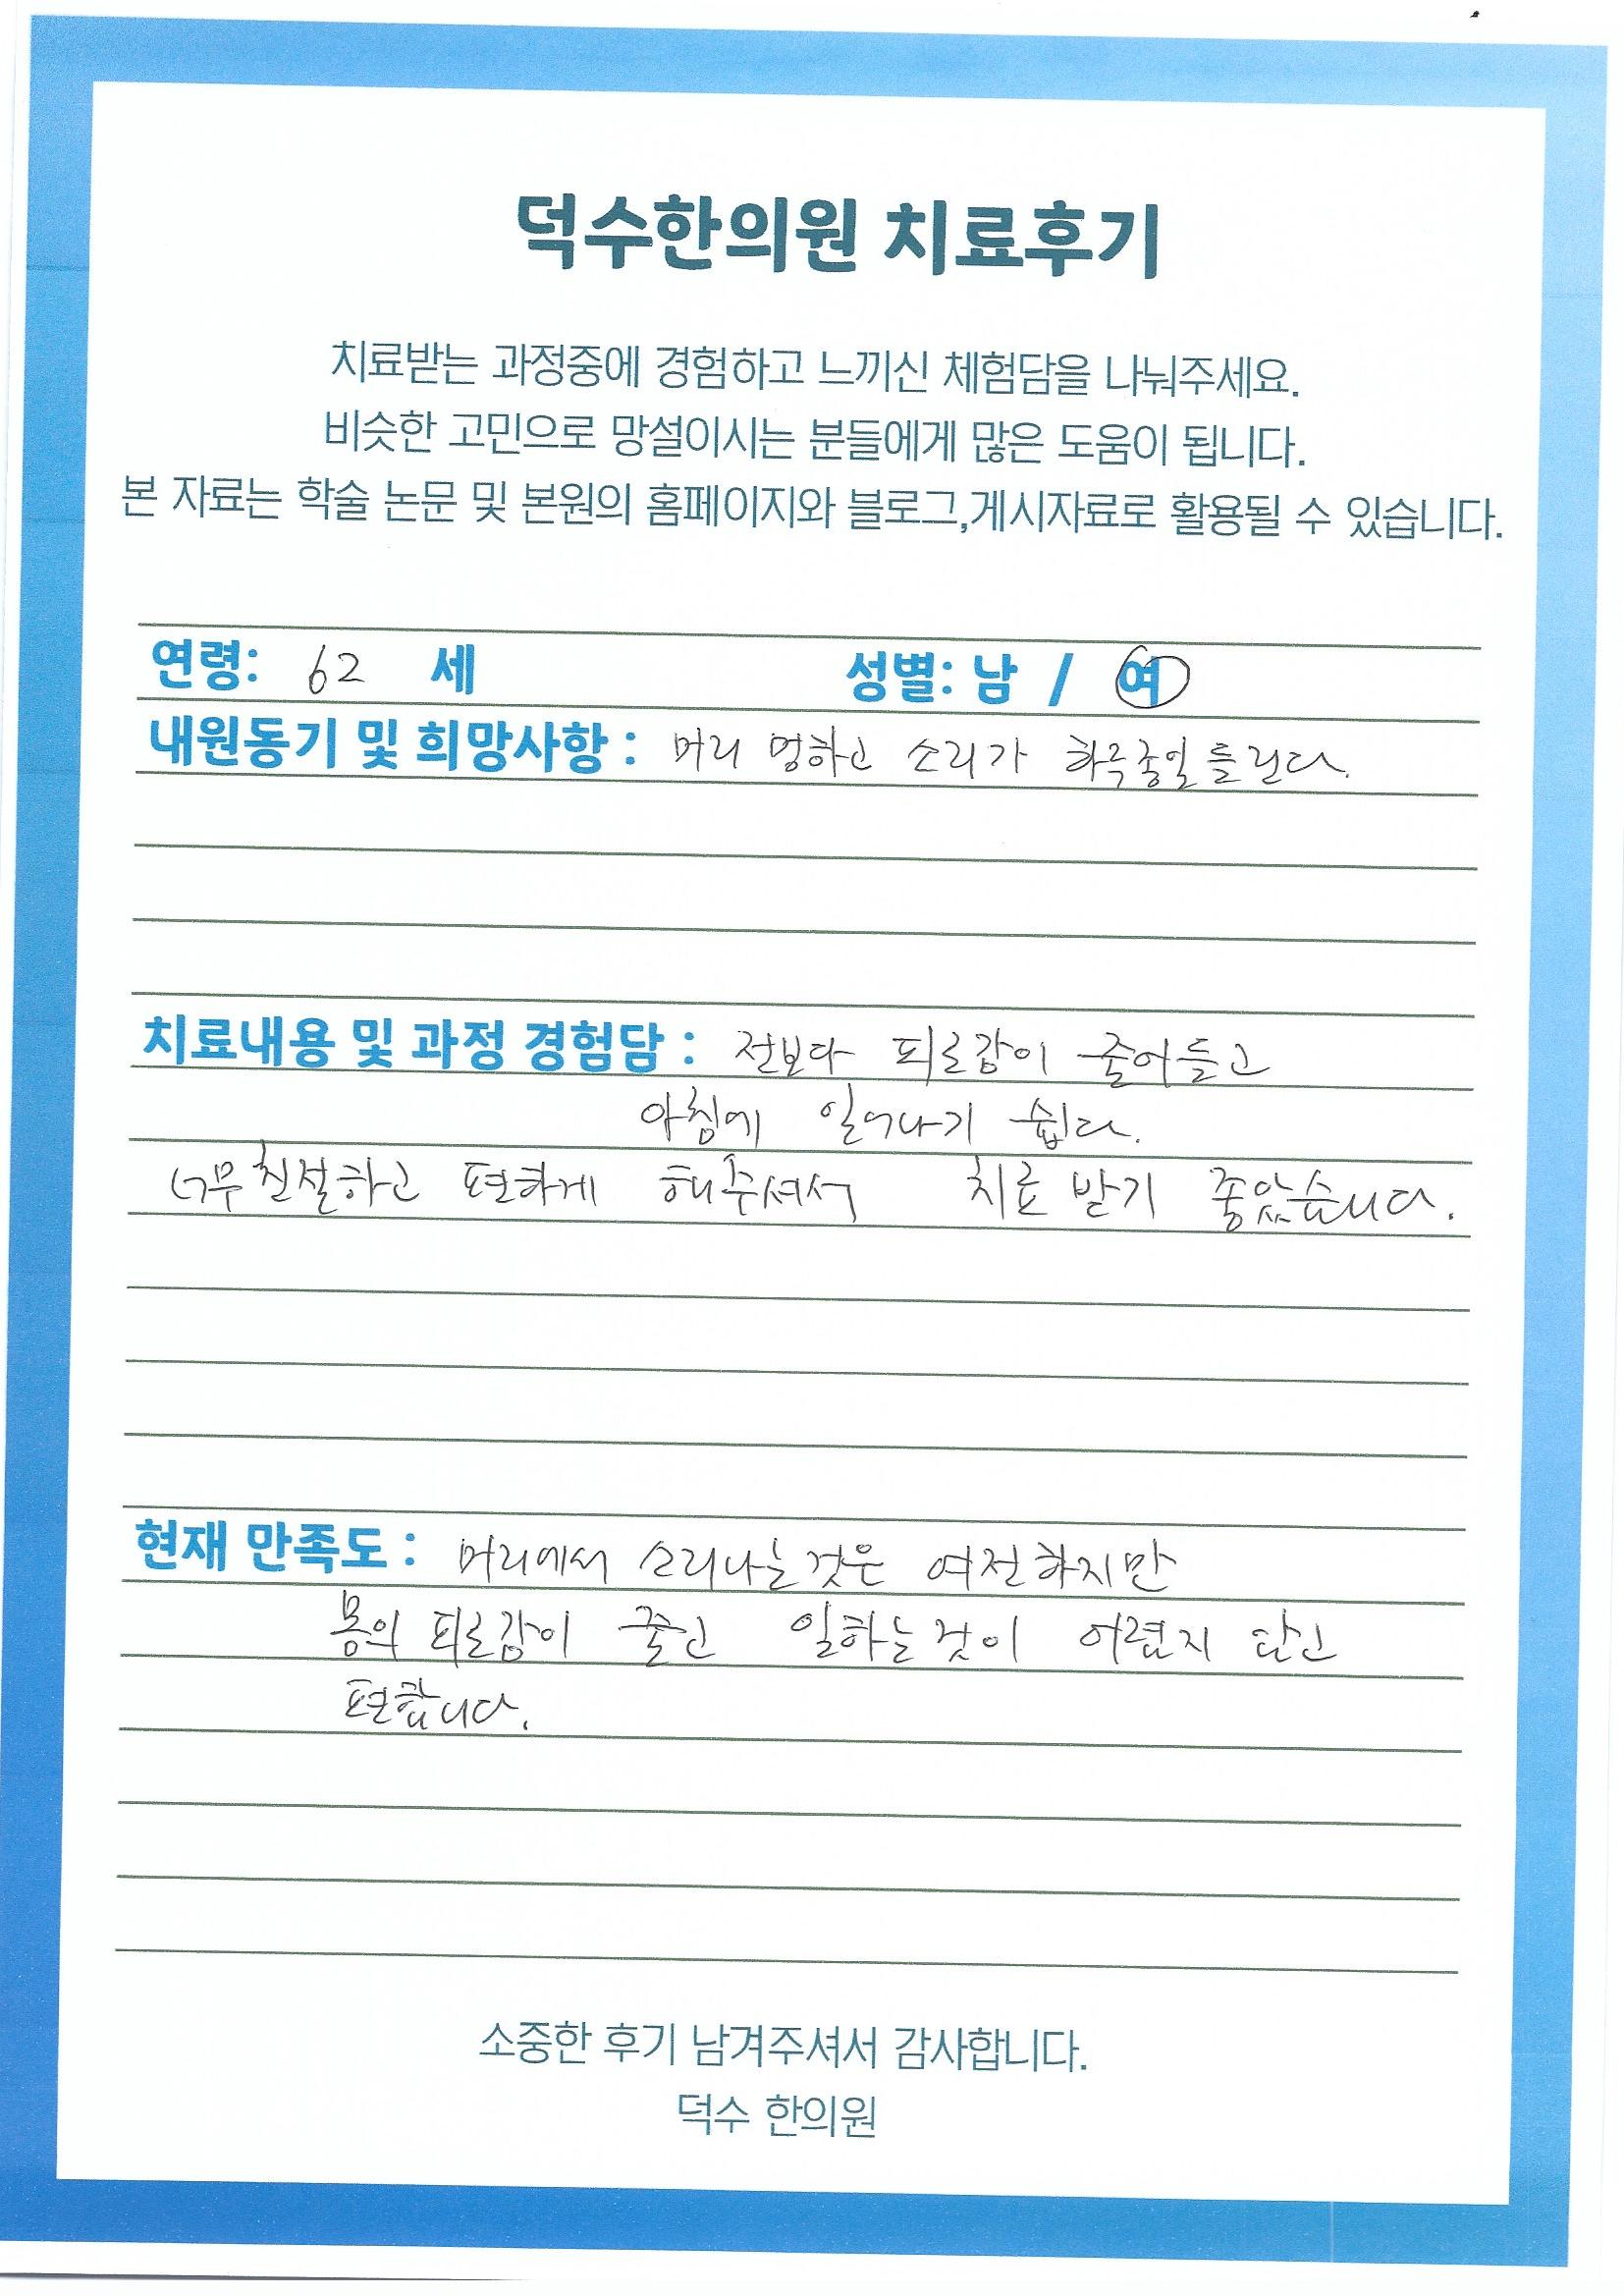 덕수한의원 치료후기
치료받는 과정중에 경험하고 느끼신 체험담을 나눠주세요.
비슷한 고민으로 망설이시는 분들에게 많은 도움이 됩니다.
본 자료는 학술 논문 및 본원의 홈페이지와 블로그,게시자료로 활용될 수 있습니다.
연령: 62 세 성별: 남 / 여
내원동기 및 희망사항 : 머리 멍하고 소리가 하루종일 들린다.
치료내용 및 과정 경험담 : 전보다 피로감이 줄어들고
아침에 일어나기 쉽다.
너무 친절하고 편하게 해주셔서 치료 받기 좋았습니다.
현재 만족도 : 머리에서 소리나는것은 여전하지만
몸의 피로감이 줄고 일하는것이 어렵지 않고
편합니다.
소중한 후기 남겨주셔서 감사합니다.
덕수 한의원